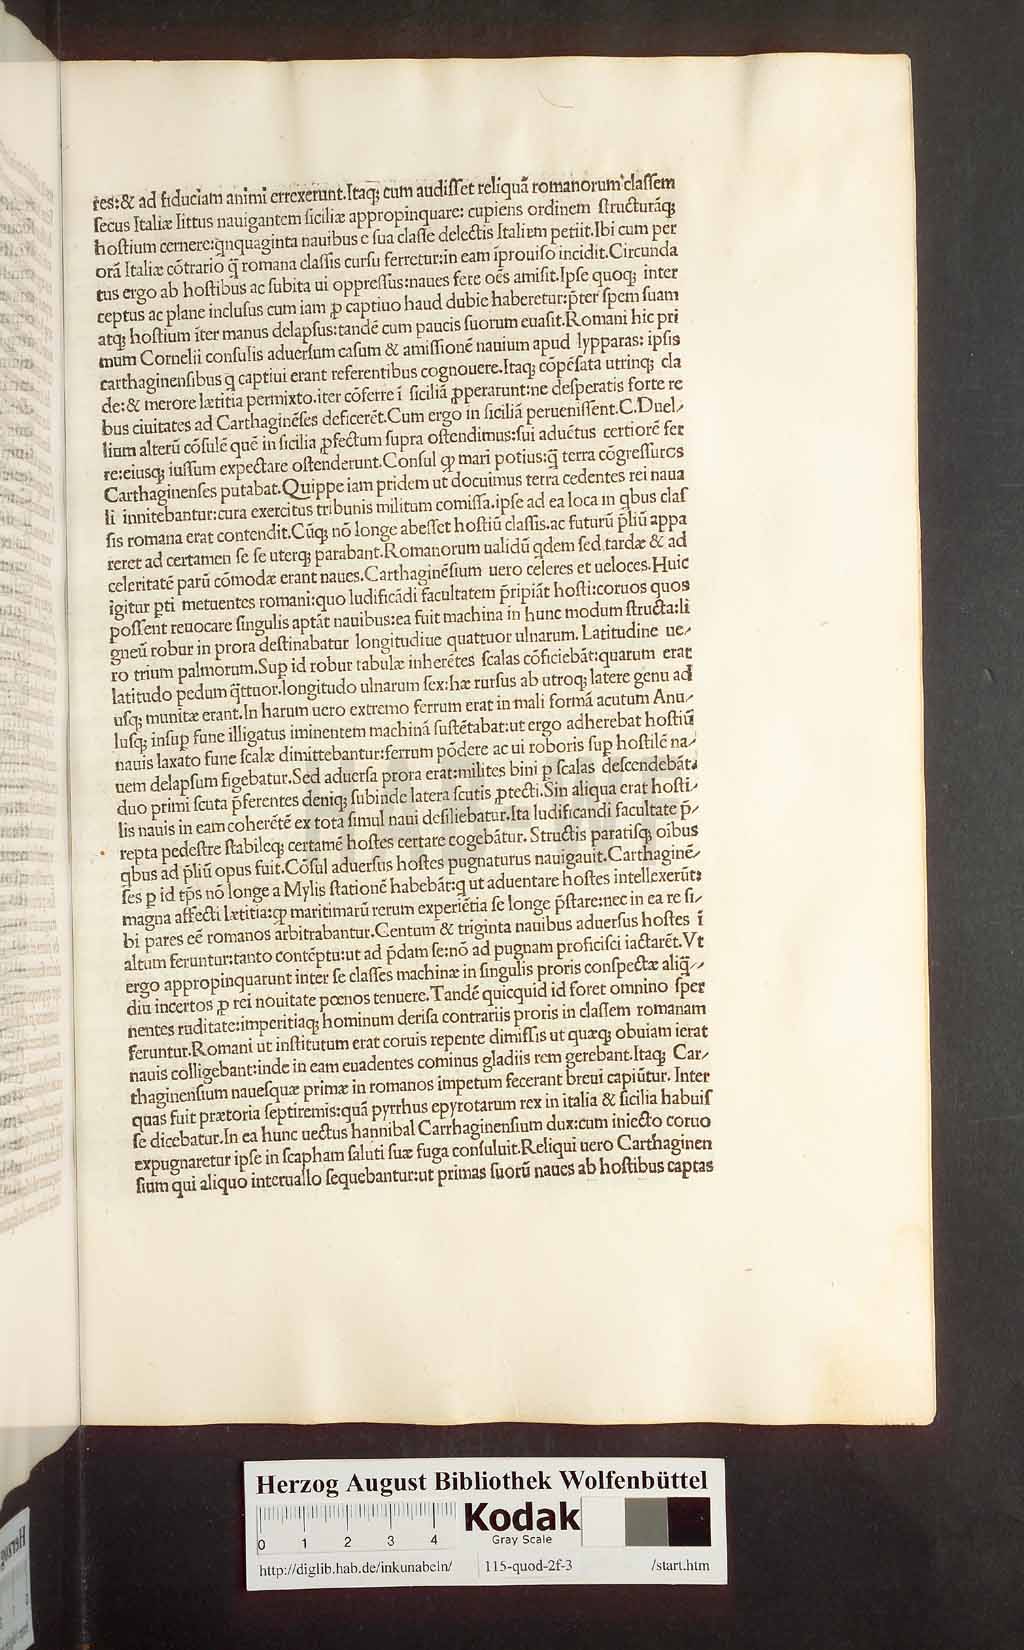 res:& ad fiduciam animi errexerunt.Itaq; cum audiſſet reliquã romanorum claſſem
ſecus Italiæ littus nauigantem ſiciliæ appropinquare: cupiens ordinem ſtructurãq;
hoſtium cernere:qnquaginta nauibus e ſua claſſe delectis Italiem petiit.Ibi cum per
orã Italiæ cõtrario q̃ romana claſſis curſu ferretur:in eam ĩprouiſo incidit.Circunda
tus ergo ab hoſtibus ac ſubita ui oppreſſus:naues fere oẽs amiſit.Ipſe quoq; inter
ceptus ac plane incluſus cum iam ꝓ captiuo haud dubie haberetur:p̃ter ſpem ſuam
atq; hoſtium ĩter manus delapſus:tandẽ cum paucis ſuorum euaſit.Romani hic pri
mum Cornelii conſulis aduerſum caſum & amiſſionẽ nauium apud lypparas: ipſis
carthaginenſibus q̃ captiui erant referentibus cognouere.Itaq; cõpẽſata utrinq; cla
de:& merore lætitia permixto.iter cõferre ĩ ſiciliã ꝓperarunt:ne deſperatis forte re
bus ciuitates ad Carthaginẽſes deficerẽt.Cum ergo in ſiciliã perueniſſent.C.Duel⸗
lium alterũ cõſulẽ quẽ in ſicilia ꝓfectum ſupra oſtendimus:ſui aduẽtus certiorẽ fer
re:eiusq; iuſſum expectare oſtenderunt.Conſul ꝙ mari potius:q̃ terra cõgreſſuros
Carthaginenſes putabat.Quippe iam pridem ut docuimus terra cedentes rei naua
li innitebantur:cura exercitus tribunis militum comiſſa.ipſe ad ea loca in qbus claſ
ſis romana erat contendit.Cũq; nõ longe abeſſet hoſtiũ claſſis.ac futurũ p̃liũ appa
reret ad certamen ſe ſe uterq; parabant.Romanorum ualidũ qdem ſed tardæ & ad
celeritatẽ parũ cõmodæ erant naues.Carthaginẽſium uero celeres et ueloces.Huic
igitur ꝑti metuentes romani:quo ludificãdi facultatem p̃ripiãt hoſti:coruos quos
poſſent reuocare ſingulis aptãt nauibus:ea fuit machina in hunc modum ſtructa:li
gneũ robur in prora deſtinabatur longitudiue quattuor ulnarum. Latitudine ue⸗
ro trium palmorum.Sup id robur tabulæ inherẽtes ſcalas cõficiebãt:quarum erat
latitudo pedum q̃ttuor.longitudo ulnarum ſex:hæ rurſus ab utroq; latere genu ad
uſq; munitæ erant.In harum uero extremo ferrum erat in mali formã acutum Anu⸗
luſq; inſup fune illigatus iminentem machinã ſuſtẽtabat:ut ergo adherebat hoſtiũ
nauis laxato fune ſcalæ dimittebantur:ferrum põdere ac ui roboris ſup hoſtilẽ na⸗
uem delapſum figebatur.Sed aduerſa prora erat:milites bini ꝑ ſcalas deſcendebãt:
duo primi ſcuta p̃ferentes deniq; ſubinde latera ſcutis ꝓtecti.Sin aliqua erat hoſti⸗
lis nauis in eam coherẽtẽ ex tota ſimul naui deſiliebatur.Ita ludificandi facultate p̃⸗
repta pedeſtre ſtabileq; certamẽ hoſtes certare cogebãtur. Structis paratiſq; oĩbus
qbus ad p̃liũ opus fuit.Cõſul aduerſus hoſtes pugnaturus nauigauit.Carthaginẽ⸗
ſes ꝑ id tp̃s nõ longe a Mylis ſtationẽ habebãt:q ut aduentare hoſtes intellexerũt:
magna affecti lætitia:ꝙ maritimarũ rerum experiẽtia ſe longe p̃ſtare:nec in ea re ſi⸗
bi pares eẽ romanos arbitrabantur.Centum & triginta nauibus aduerſus hoſtes ĩ
altum feruntur:tanto contẽptu:ut ad p̃dam ſe:nõ ad pugnam proficiſci iactarẽt.Vt
ergo appropinquarunt inter ſe claſſes machinæ in ſingulis proris conſpectæ aliq̃⸗
diu incertos ꝓ rei nouitate pœnos tenuere.Tandẽ quicquid id foret omnino ſper
nentes ruditate:imperitiaq; hominum deriſa contrariis proris in claſſem romanam
feruntur.Romani ut inſtitutum erat coruis repente dimiſſis ut quæq; obuiam ierat
nauis colligebant:inde in eam euadentes cominus gladiis rem gerebant.Itaq; Car⸗
thaginenſium naueſquæ primæ in romanos impetum fecerant breui capiũtur. Inter
quas fuit prætoria ſeptiremis:quã pyrrhus epyrotarum rex in italia & ſicilia habuiſ
ſe dicebatur.In ea hunc uectus hannibal Carrhaginenſium dux:cum iniecto coruo
expugnaretur ipſe in ſcapham ſaluti ſuæ fuga conſuluit.Reliqui uero Carthaginen
ſium qui aliquo interuallo ſequebantur:ut primas ſuorũ naues ab hoſtibus captas
Herzog August Bibliothek Wolfenbüttel
0 1 2 3 4
Kodak
Gray Scale
http://diglib.hab.de/inkunabeln/ 115-quod-2f-3 /start.htm